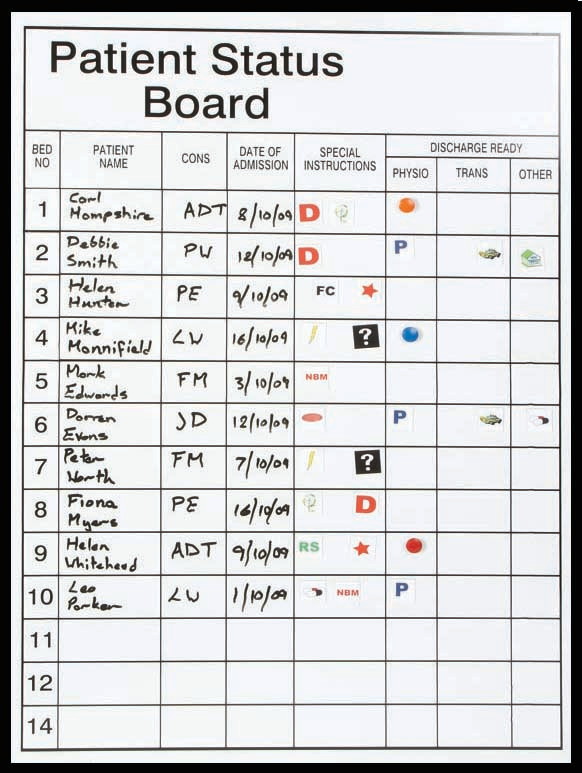 Patient Status
Board
BED NO PATIENT NAME CONS DATE OF ADMISSION SPECIAL INSTRUCTIONS DISCHARGE READY
PHYSIO TRANS OTHER
1 Carl Hampshire ADT 8/10/09 D
2 Debbie Smith PW 12/10/09 D P
3 Helen Hunter PE 9/10/09 FC
4 Mike Mannifield LW 16/10/09 ?
5 Mark Edwards FM 3/10/09 NBM
6 Darren Evans JD 12/10/09 P
7 Peter North FM 7/10/09 ?
8 Fiona Myers PE 16/10/09 D
9 Helen Whitehead ADT 9/10/09 RS
10 Leo Parker LW 1/10/09 NBM P
11
12
14